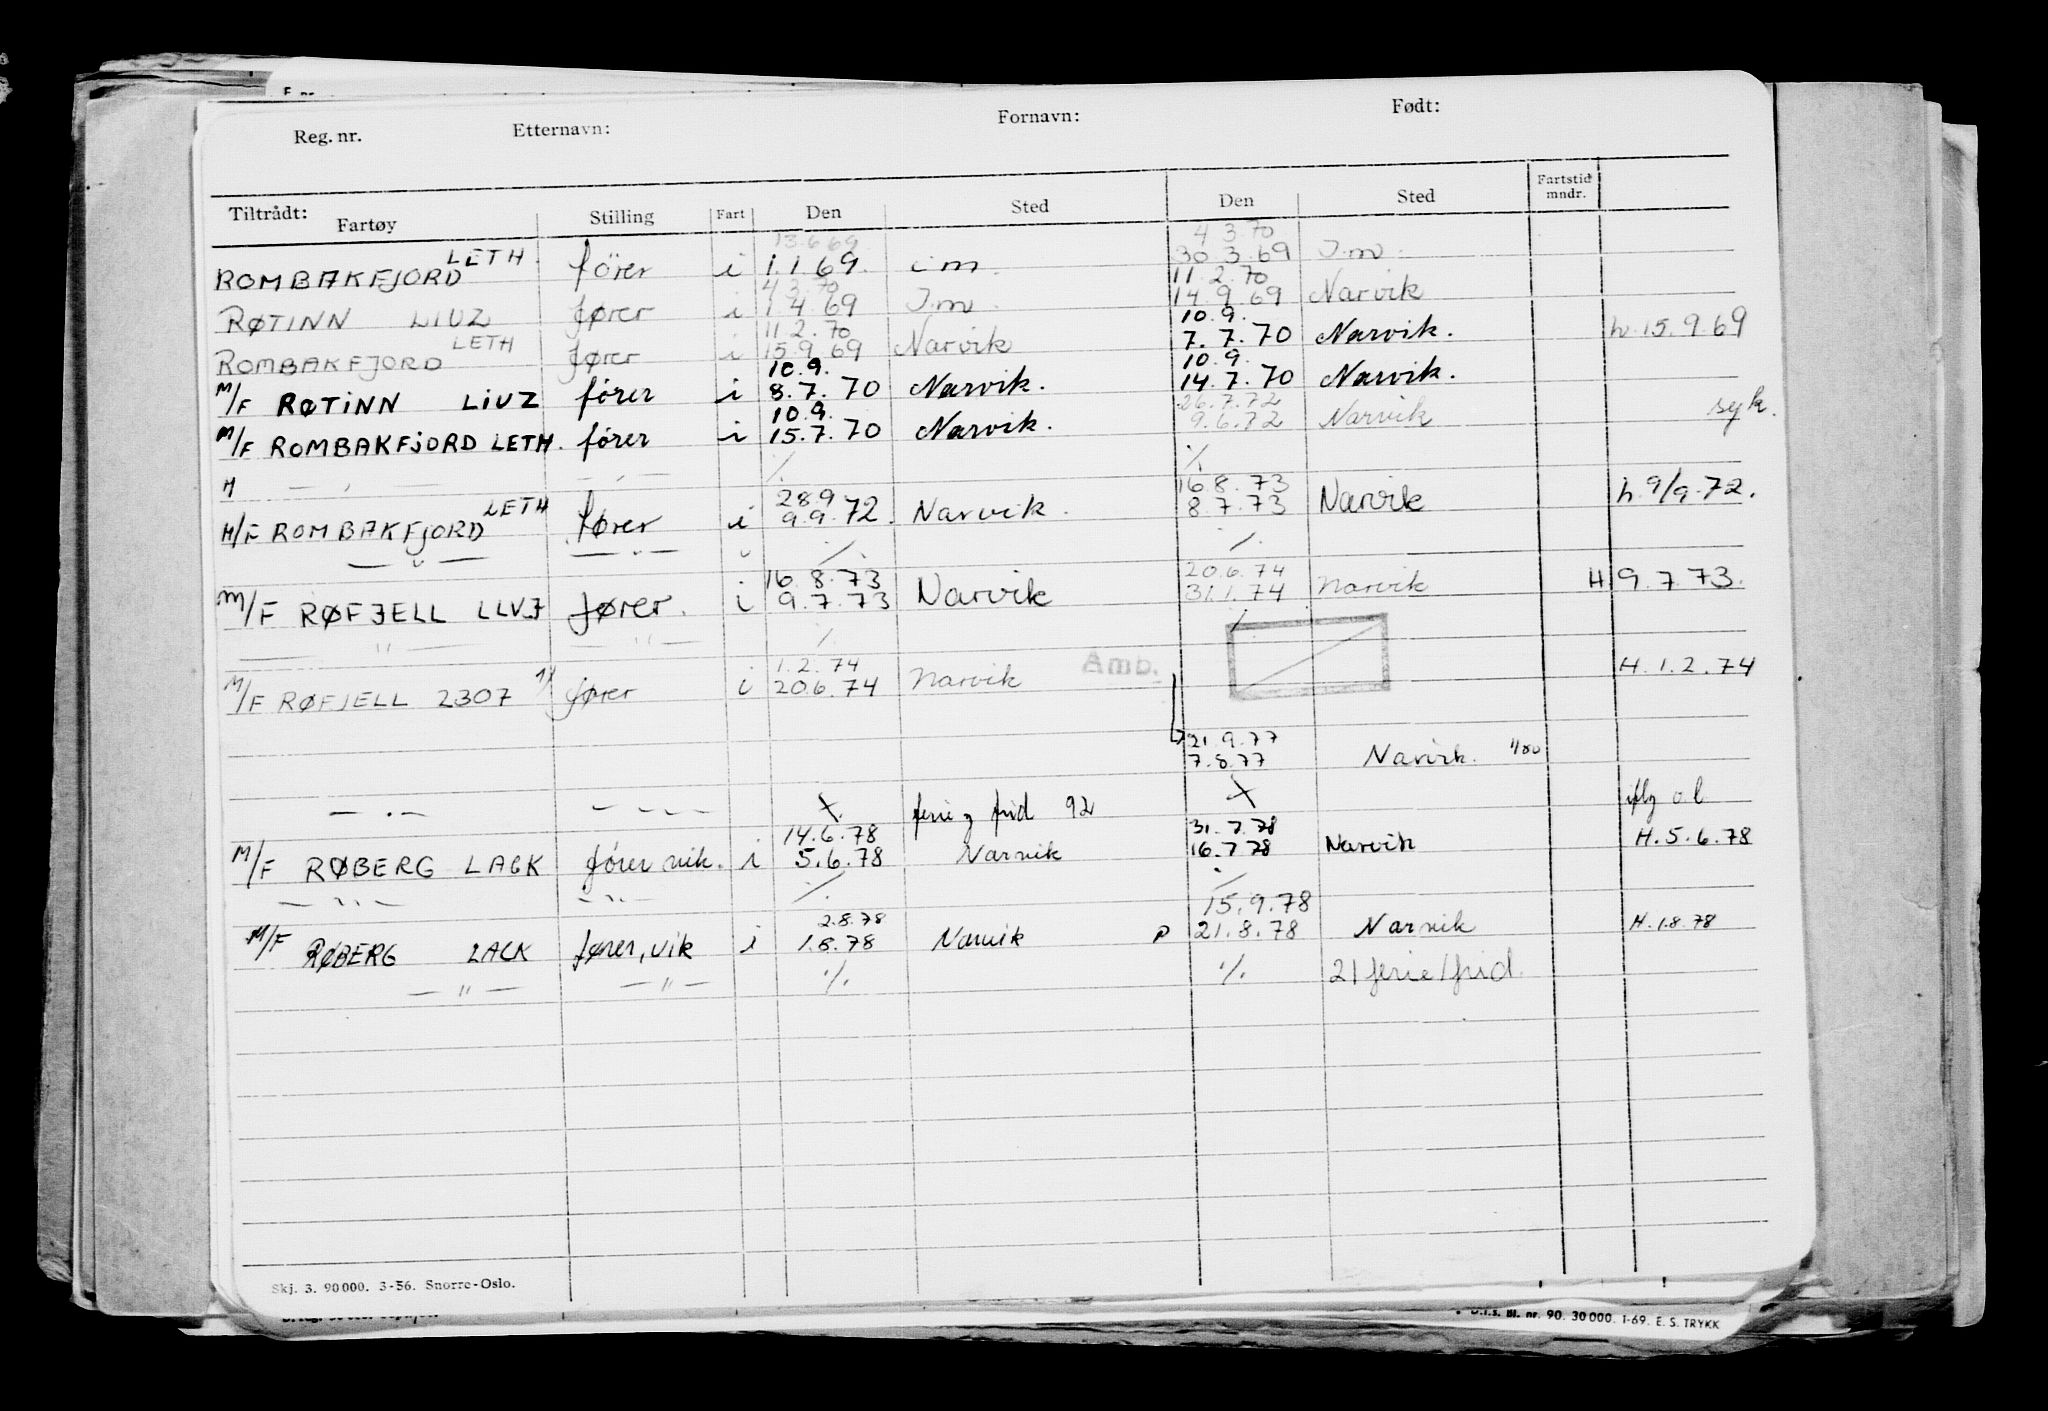 Reg. nr. Etternavn: Fornavn: Født:
Tiltrådt: Fartøy Stilling Fart Den Sted Den Sted Fartstid mndr.
13.6.69 4 3.70
ROMBAKFJORD LETH. fører i 1.1.69. i m. 30 3.69 I.m.
4 3.70 11.2.70
RØTINN LIUZ fører i 1.4.69 I.m. 14.9.69 Narvik
11 2.70 10.9.
ROMBAKFJORD LETH fører i 15.9.69 Narvik 7.7.70 Narvik. h.15.9.69
10.9. 10.9.
M/F RØTINN LIUZ fører i 8.7.70 Narvik. 14.7.70 Narvik.
10.9. 26.7.72
M/F ROMBAKFJORD LETH. fører i 15.7.70 Narvik. 9.6.72 Narvik syk.
— " — — " — ./. ./.
28.9 16.8.73
M/F ROMBAKFJORD LETH fører i 9.9.72. Narvik. 8.7.73 Narvik h. 9/9-72.
— " — — " — " ./. ./.
16.8.73 20.6.74
M/F RØFJELL LLVJ fører. i 9.7.73 Narvik 31.1.74 Narvik H 9.7.73.
— " — — " — ./. ./.
1.2.74
M/F RØFJELL 2307 fører i 20.6.74 Narvik Amb. H.1.2.74
21.9.77
7.8.77 Narvik. 1/80
— " — — " — ferie og frid 92
14.6.78 31.7.78
M/F RØBERG LACK fører vik. i 5.6.78 Narvik 16.7.78 Narvik H.5.6.78
— " — — " — ./. ./.
2.8.78 15.9.78
M/F RØBERG LACK fører, vik i 1.8.78 Narvik P 21.8.78 Narvik H.1.8.78
— " — — " — ./. ./. 21 ferie/frid
Skj. 3. 90 000. 3-56. Snorre-Oslo.
D.T.S. Bl. nr. 90. 30 000. 1-69. E. S. TRYKK